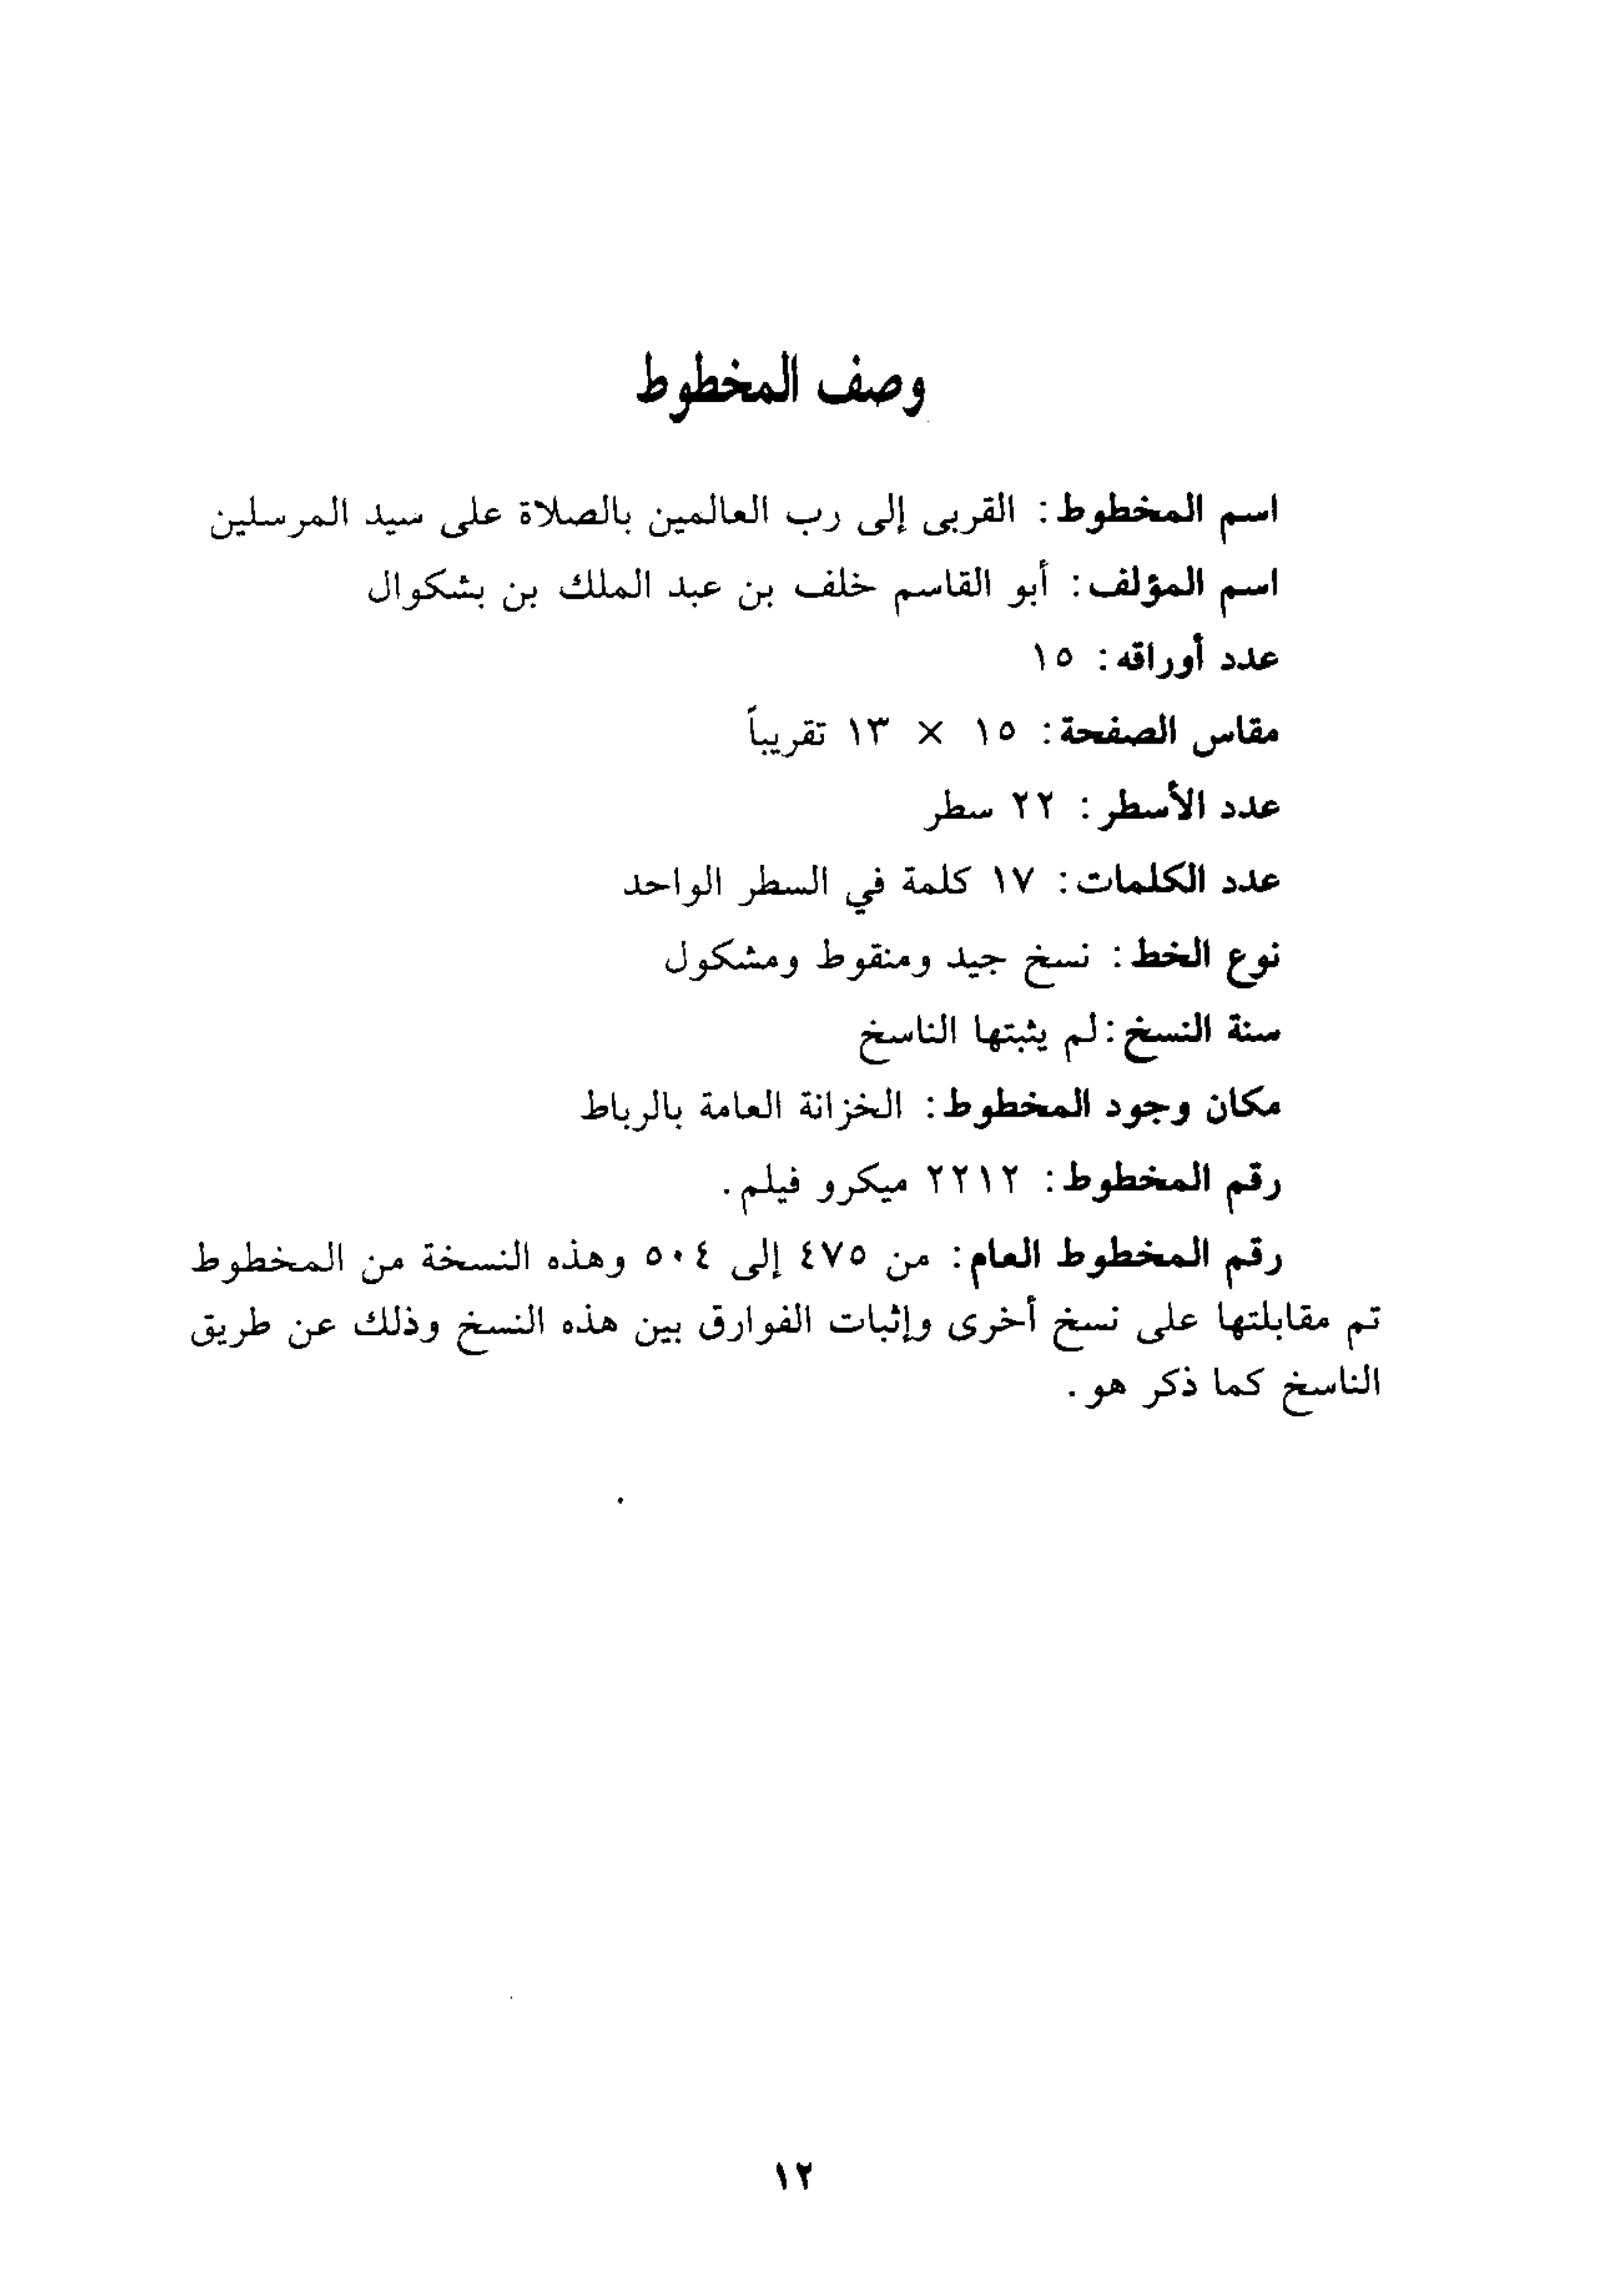 وصف المخطوط
اسم المخطوط: القربى إلى رب العالمين بالصلاة على سيد المرسلين
اسم المؤلف: أبو القاسم خلف بن عبد الملك بن بشكوال
عدد أوراقه: ١٥
مقاس الصفحة: ١٥ × ١٣ تقريباً
عدد الأسطر: ٢٢ سطر
عدد الكلمات: ١٧ كلمة في السطر الواحد
نوع الخط: نسخ جيد ومنقوط ومشكول
سنة النسخ: لم يثبتها الناسخ
مكان وجود المخطوط: الخزانة العامة بالرباط
رقم المخطوط: ٢٢١٢ ميكرو فيلم.
رقم المخطوط العام: من ٤٧٥ إلى ٥٠٤ وهذه النسخة من المخطوط
تم مقابلتها على نسخ أخرى وإثبات الفوارق بين هذه النسخ وذلك عن طريق
الناسخ كما ذكر هو.
١٢